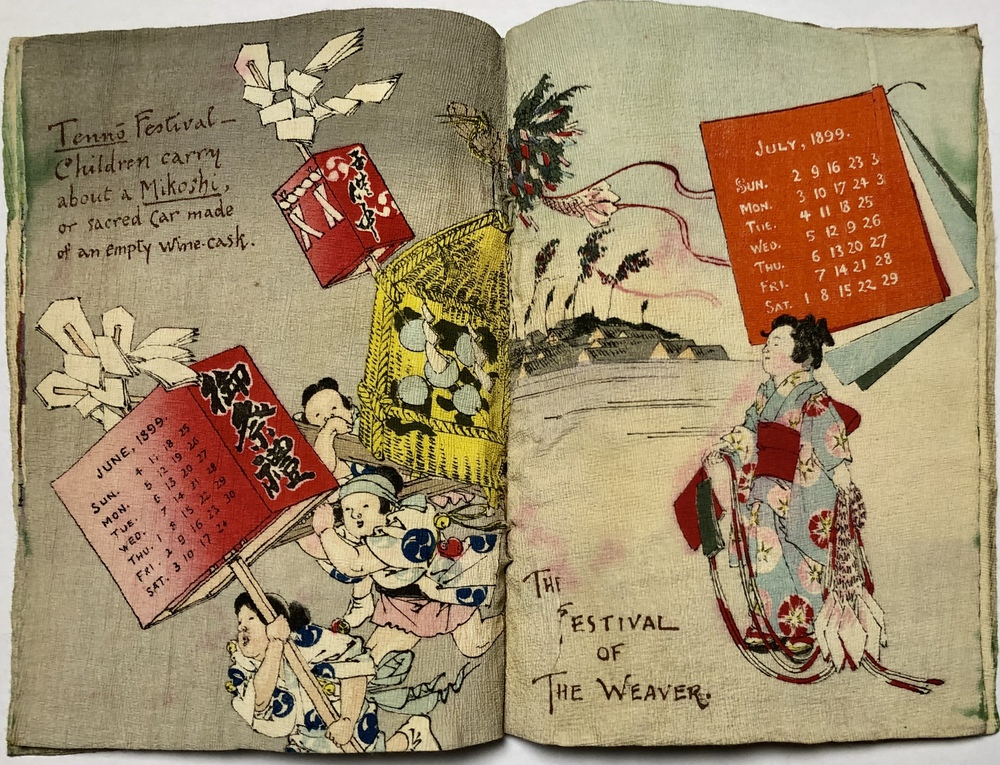 Tennō Festival—
Children carry
about a Mikoshi,
or sacred Car made
of an empty wine-cask.
子供中
御祭禮
JUNE, 1899.
SUN. 4 11 18 25
MON. 5 12 19 26
TUE. 6 13 20 27
WED. 7 14 21 28
THU. 1 8 15 22 29
FRI. 2 9 16 23 30
SAT. 3 10 17 24
JULY, 1899.
SUN. 2 9 16 23 3
MON. 3 10 17 24 3
TUE. 4 11 18 25
WED. 5 12 9 26
THU. 6 13 20 27
FRI. 7 14 21 28
SAT. 1 8 15 22 29
THE
FESTIVAL
OF
THE WEAVER.